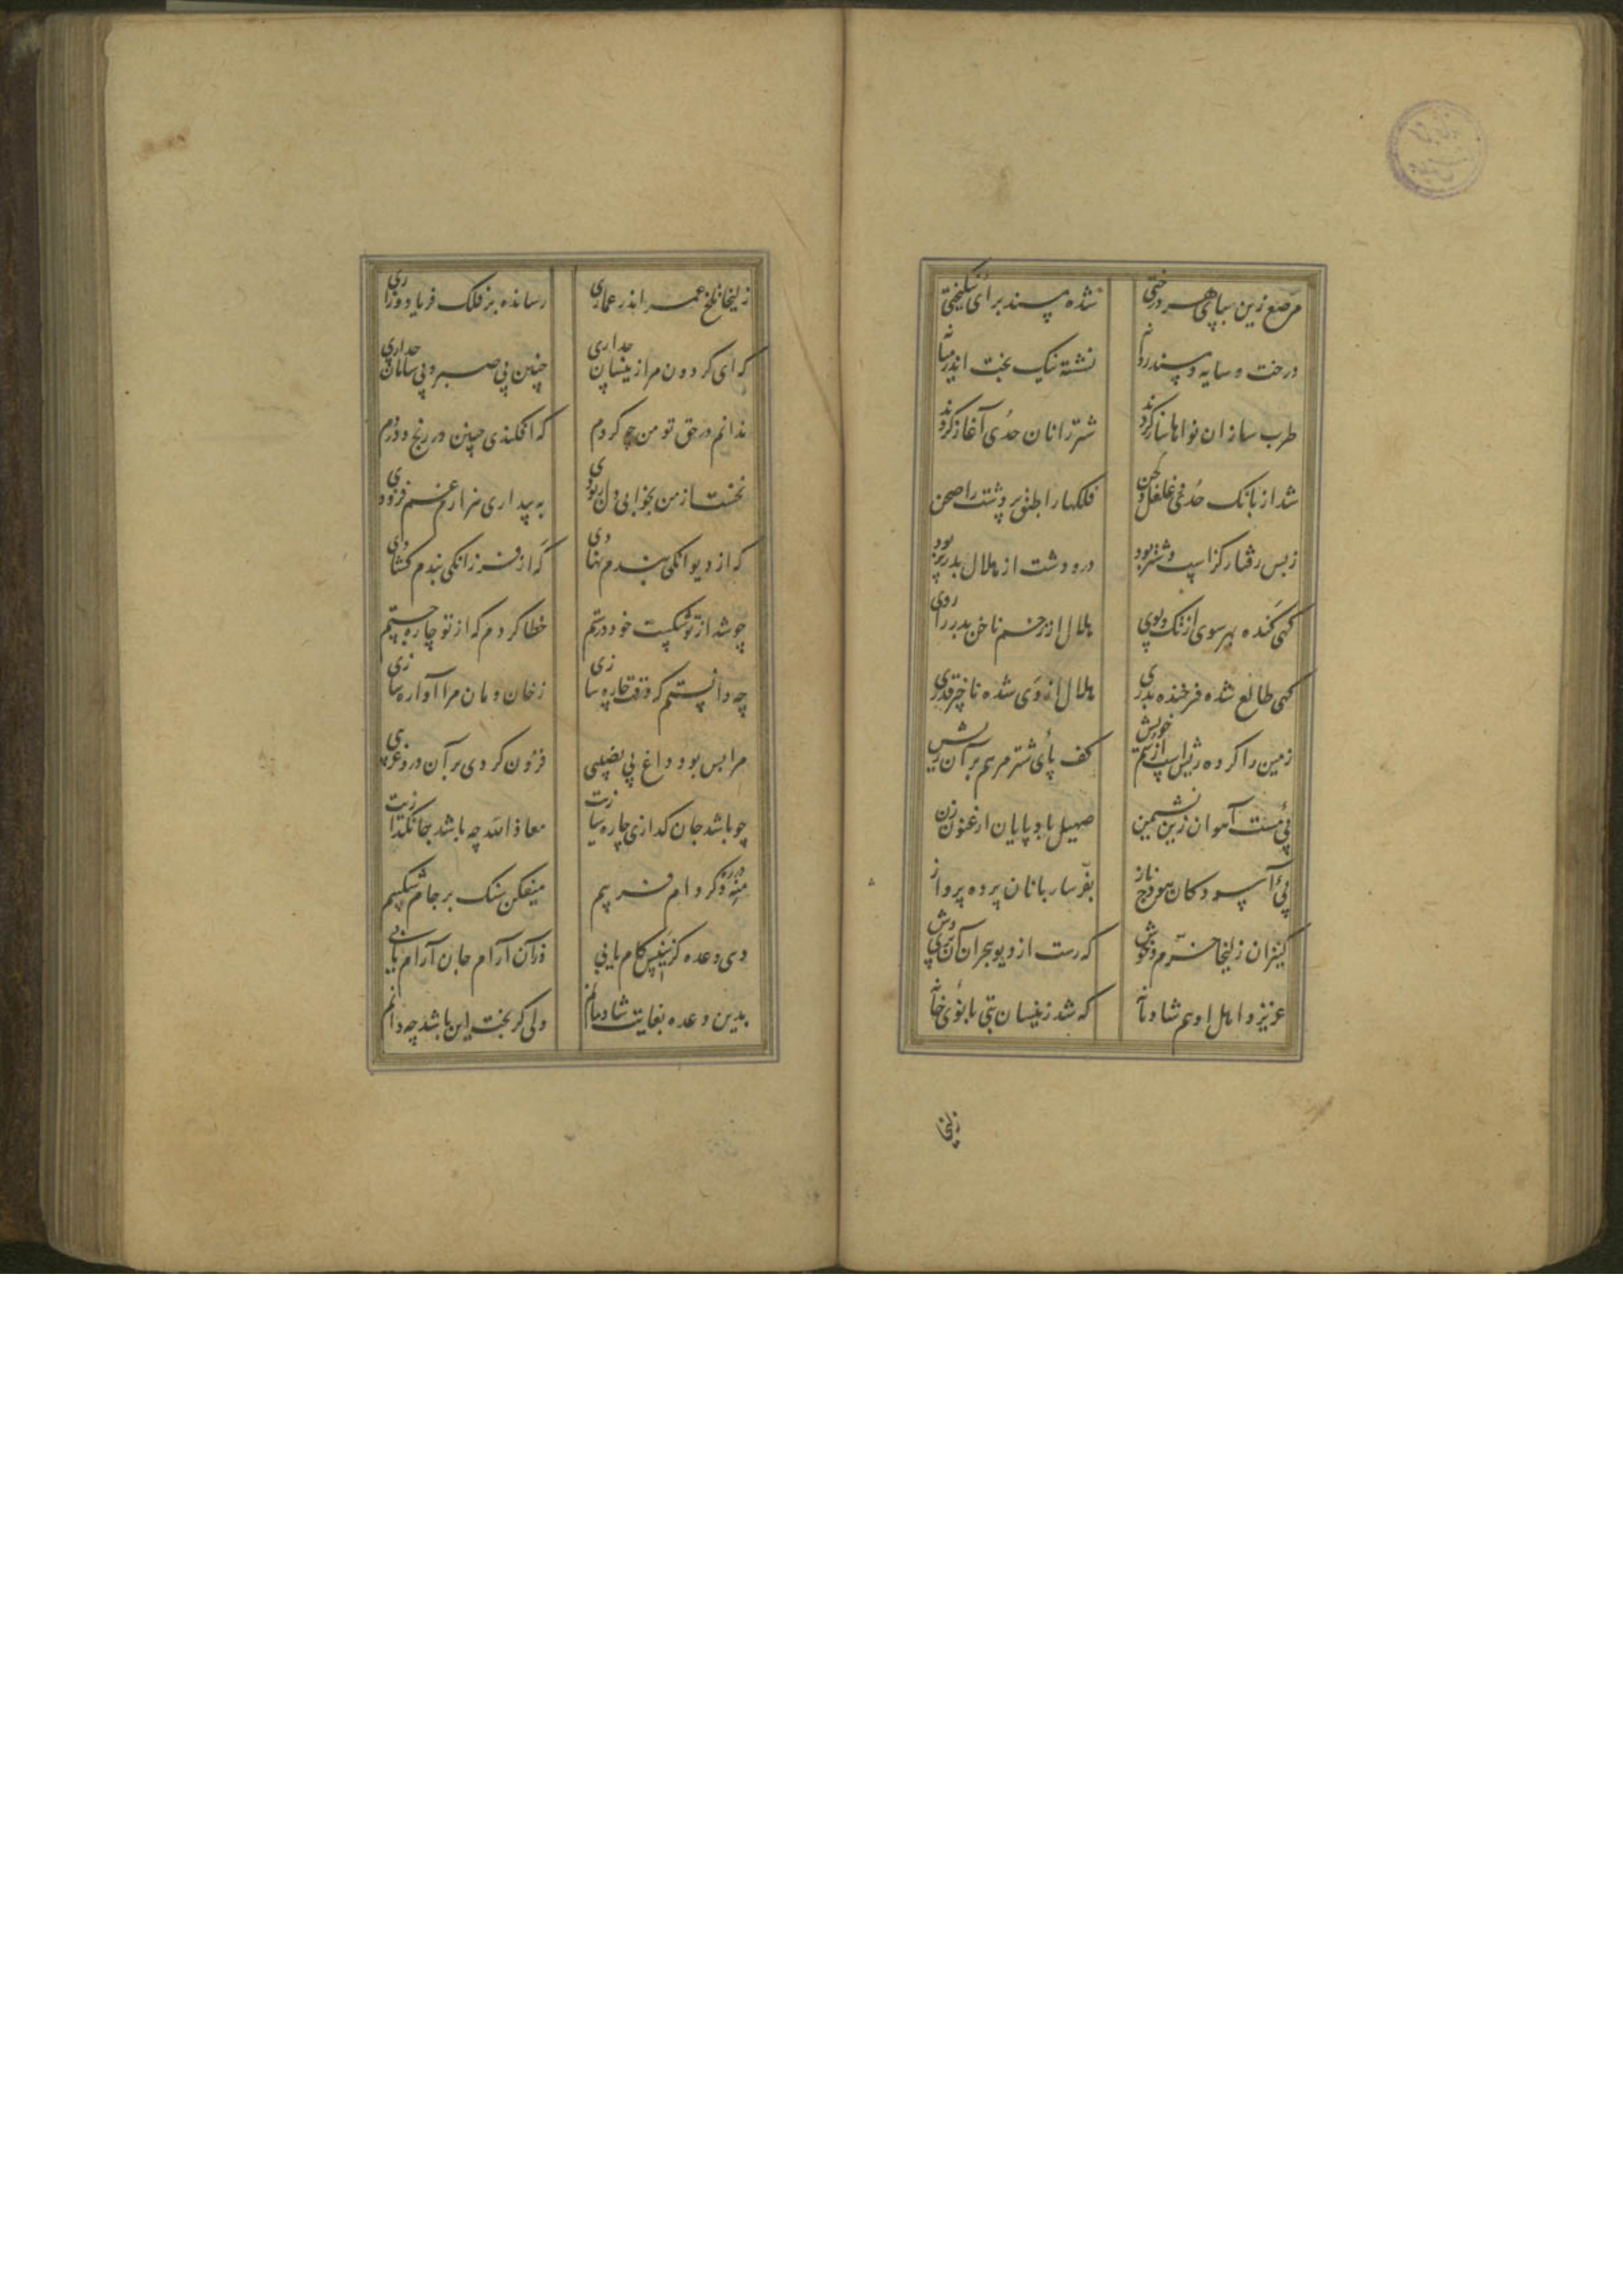 مرصع زین بپای هر درختی شده مسند برای نیکبختی
درخت و سایه و مسند روانه نشسته نیک بخت اندر میانه
طرب سازان نواها ساز کردند شتر رانان حدی آغاز کردند
شد از بانک حدی و غلغل لحن فلکها را طبق پر دشت را صحن
ز بس رفتار کز اسپ و شتر بود در و دشت از هلال بدر پر بود
کهی کنده بهر سوی از تک و پوی هلال از زخم ناخن بدر را روی
کهی طالع شده فرخنده بدری هلال از وی شده ناچیز قدری
زمین را کرده ریش اسپ از سم خویش کف پای شتر مرهم بر آن ریش
پئ مست آهوان زین نشیمن صهیل بادپایان ارغنون زن
پئ آسودکان هودج ناز بفر ساربانان پرده پرواز
کنیزان زلیخا خرم و خوش که رست از دیو هجران آن پریوش
عزیز و اهل او هم شادمانه که شد زینسان بتی بانوی خانه
زلیخا
زلیخا تلخ عمر اندر عماری رسانده بر فلک فریاد و زاری
که ای کردون مرا زینسان چه داری چنین بی صبر و بی سامان چه داری
ندانم در حق تو من چه کردم که افکندی چنین در رنج و دردم
نخست از من بخوابی دل ربودی به بیداری هزارم غم فزودی
که از دیوانکی بندم نهادی که از فرزانکی بندم کشادی
چو شد از تو شکست خود درستم خطا کردم که از تو چاره جستم
چه دانستم که وقت چاره سازی ز خان و مان مرا آواره سازی
مرا بس بود داغ بی نصیبی فزون کردی بر آن درد غریبی
چو باشد جان کدازی چاره سازیت معاذ الله چه باشد جان کدازیت
منه در ره دکر دام فریبم میفکن سنک بر جام شکیبم
دهی وعده کزین پس کام یابی وز آن آرام جان آرام یابی
بدین وعده بغایت شادمانم ولی کر بخت این باشد چه دانم